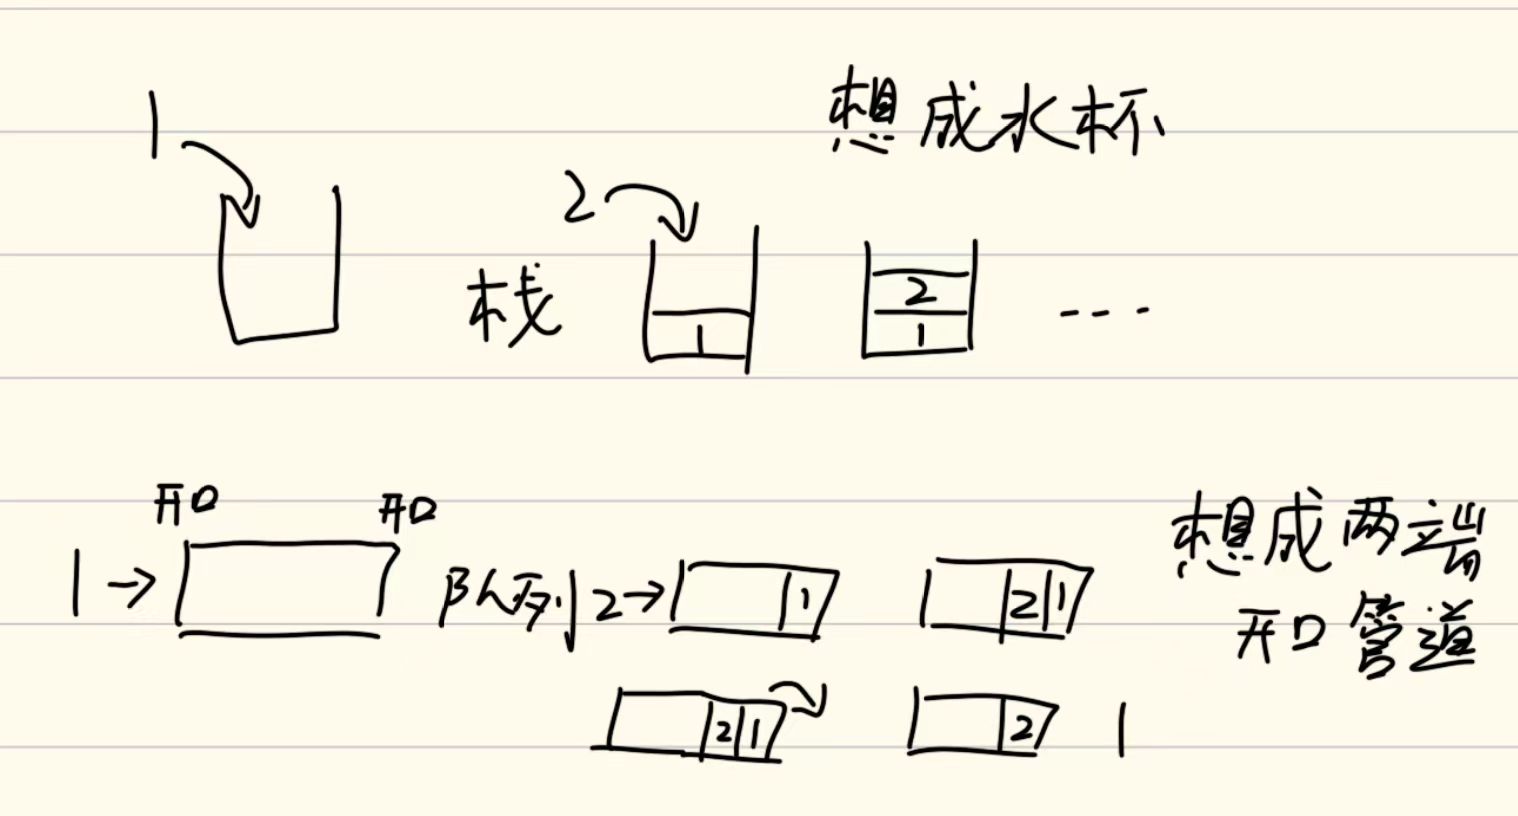 想成水杯
1
2
栈
1
2
1
...
开口
开口
1→
队列
2→
1
2 1
想成两端
开口管道
2 1
2
1